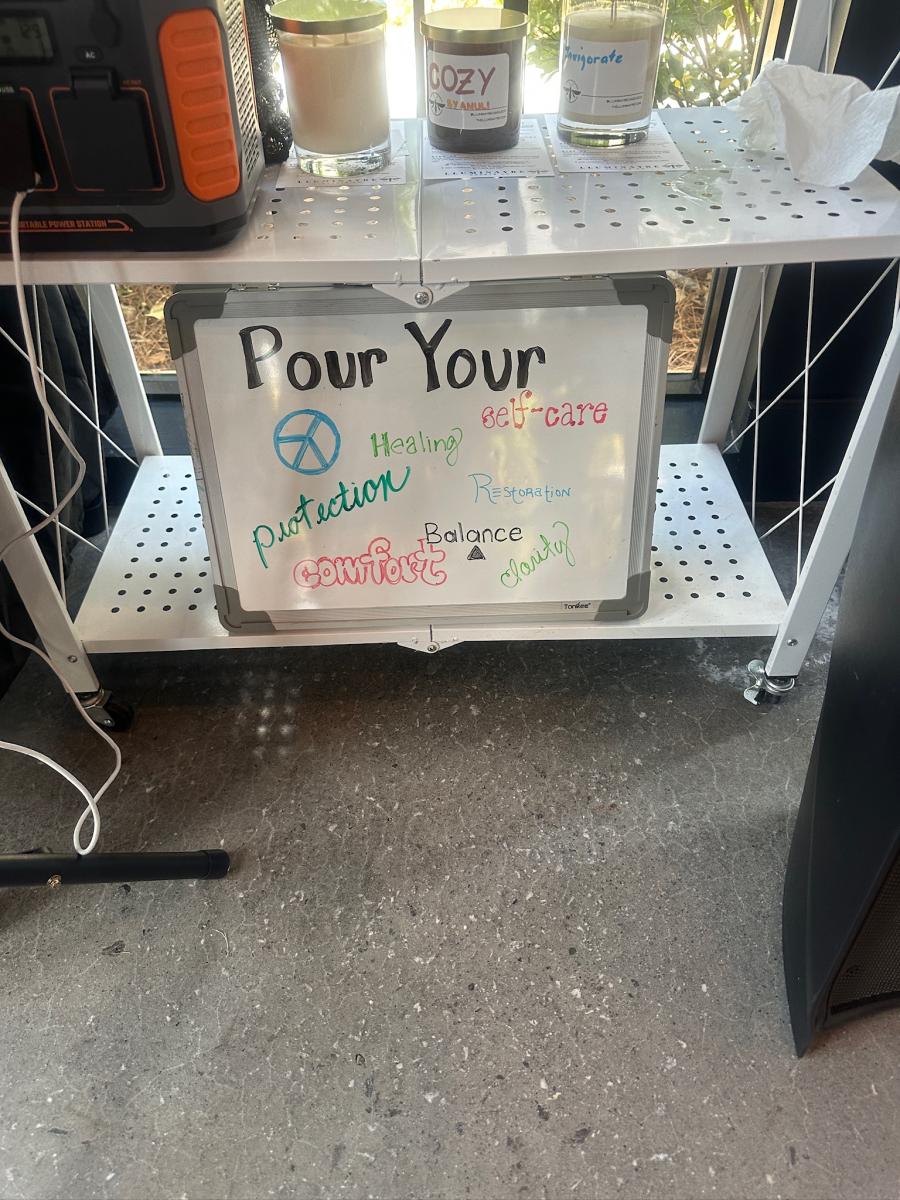 125
AC
PORTABLE POWER STATION
COZY
BY ANULI
Invigorate
Pour Your
self-care
Healing
Protection
Restoration
Balance
comfort
clarity